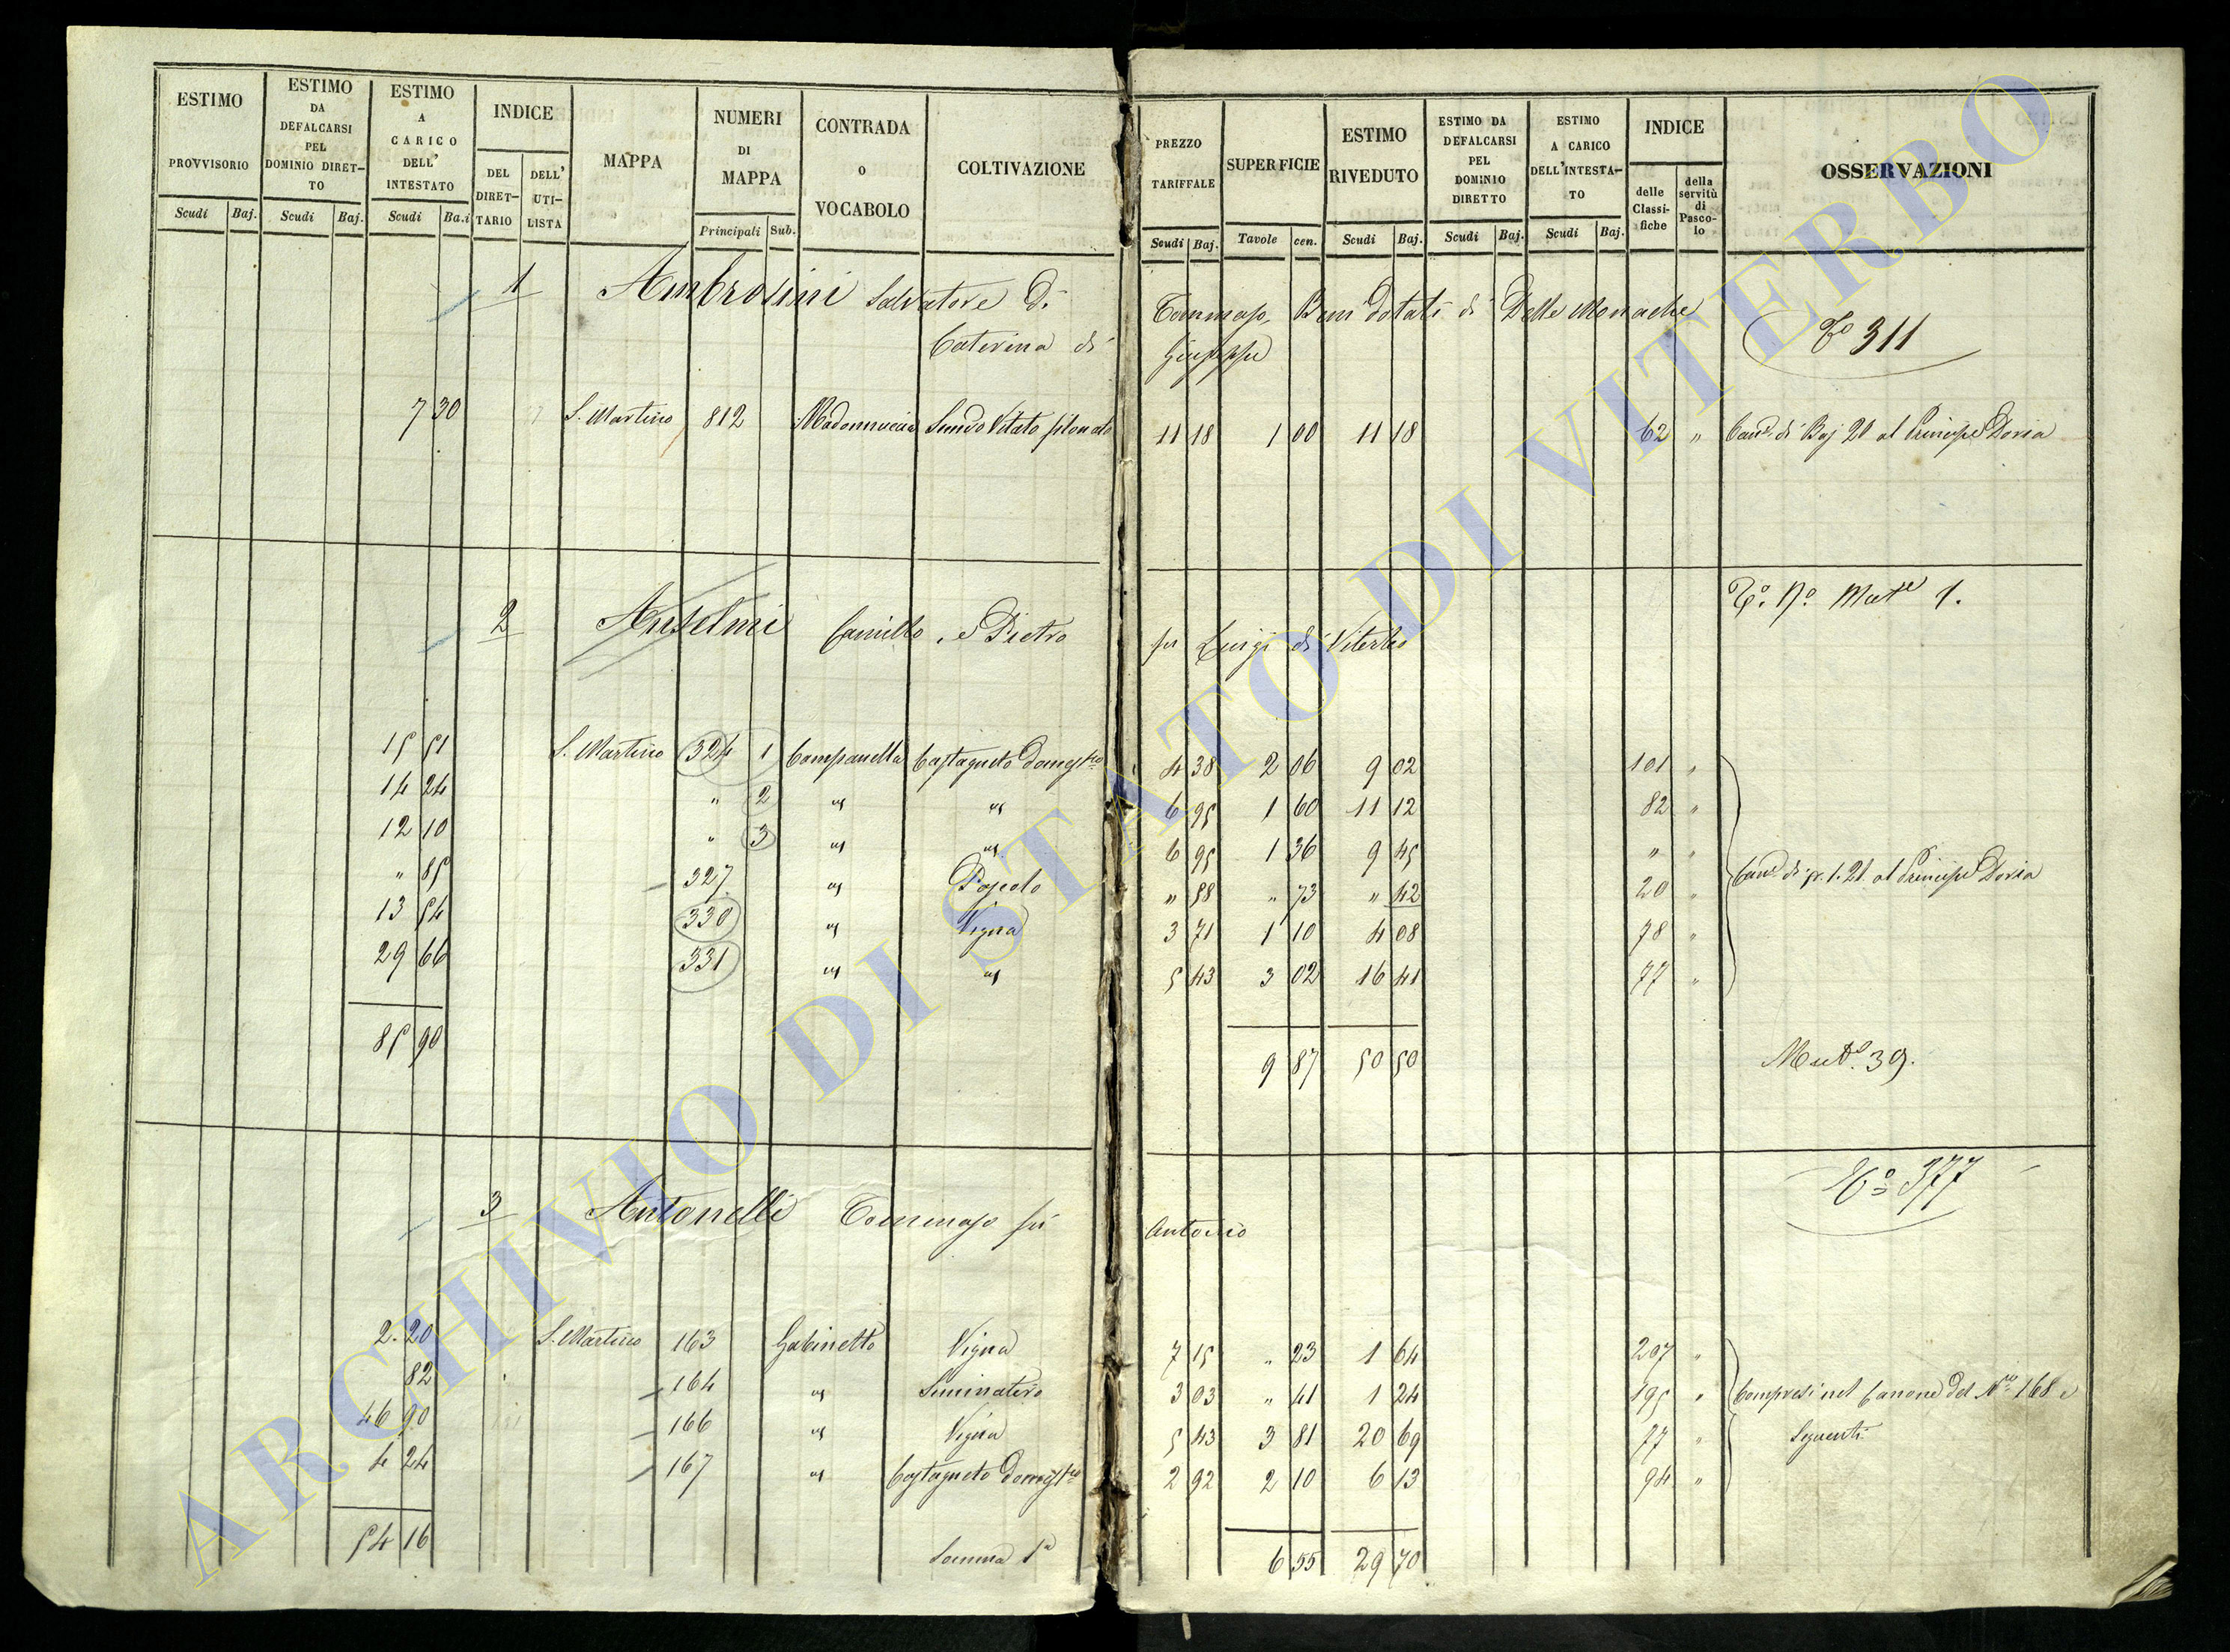 ESTIMO PROVVISORIO
ESTIMO DA DEFALCARSI PEL DOMINIO DIRET-TO
ESTIMO A CARICO DELL' INTESTATO
INDICE
DEL DIRET-TARIO
DELL' UTI-LISTA
MAPPA
NUMERI DI MAPPA
CONTRADA o VOCABOLO
COLTIVAZIONE
PREZZO TARIFFALE
SUPERFICIE
ESTIMO RIVEDUTO
ESTIMO DA DEFALCARSI PEL DOMINIO DIRETTO
ESTIMO A CARICO DELL'INTESTA-TO
INDICE
delle Classi-fiche
della servitù di Pasco-lo
OSSERVAZIONI
Scudi Baj. Scudi Baj. Scudi Ba.i Principali Sub. Scudi Baj. Tavole cen. Scudi Baj. Scudi Baj. Scudi Baj.
1 Ambrosini Salvatore di Tommaso, Beni Dotati di Delle Monache
Caterina di Giuseppe
Tº 311
7 30 S. Martino 812 Madonnuccia Semvo Vitato 11 18 1 00 11 18 62 " Cane di Baj 20 al Principe Doria
2 Anselmi Camillo, e Pietro per Luigi di Viterbo
Tº. Nº 1.
15 51 S. Martino 324 1 Campanella Castagneto Domestco 4 38 2 06 9 02 101 "
14 24 " 2 " " 6 95 1 60 11 12 82 "
12 10 " 3 " " 6 95 1 36 9 45 " "
" 85 327 " Pascolo " 58 " 73 " 42 20 " Cane di sc. 1.21 al Principe Doria
13 54 330 " Vigna 3 71 1 10 4 08 78 "
29 66 331 " " 5 43 3 02 16 41 77 "
85 90 9 87 50 50
Mutª. 39.
3 Antonelli Tommaso per Antonio
Tº 377
2. 20 S. Martino 163 Gabinetto Vigna 7 15 " 23 1 64 207 "
82 164 " Seminativo 3 03 " 41 1 24 195 " Compresi nel Canone del Nº 168 e
46 90 166 " Vigna 5 43 3 81 20 69 77 " Seguenti
4 24 167 " Castagneto Domestco 2 92 2 10 6 13 94 "
54 16 Somma 1ª 6 55 29 70
ARCHIVIO DI STATO DI VITERBO